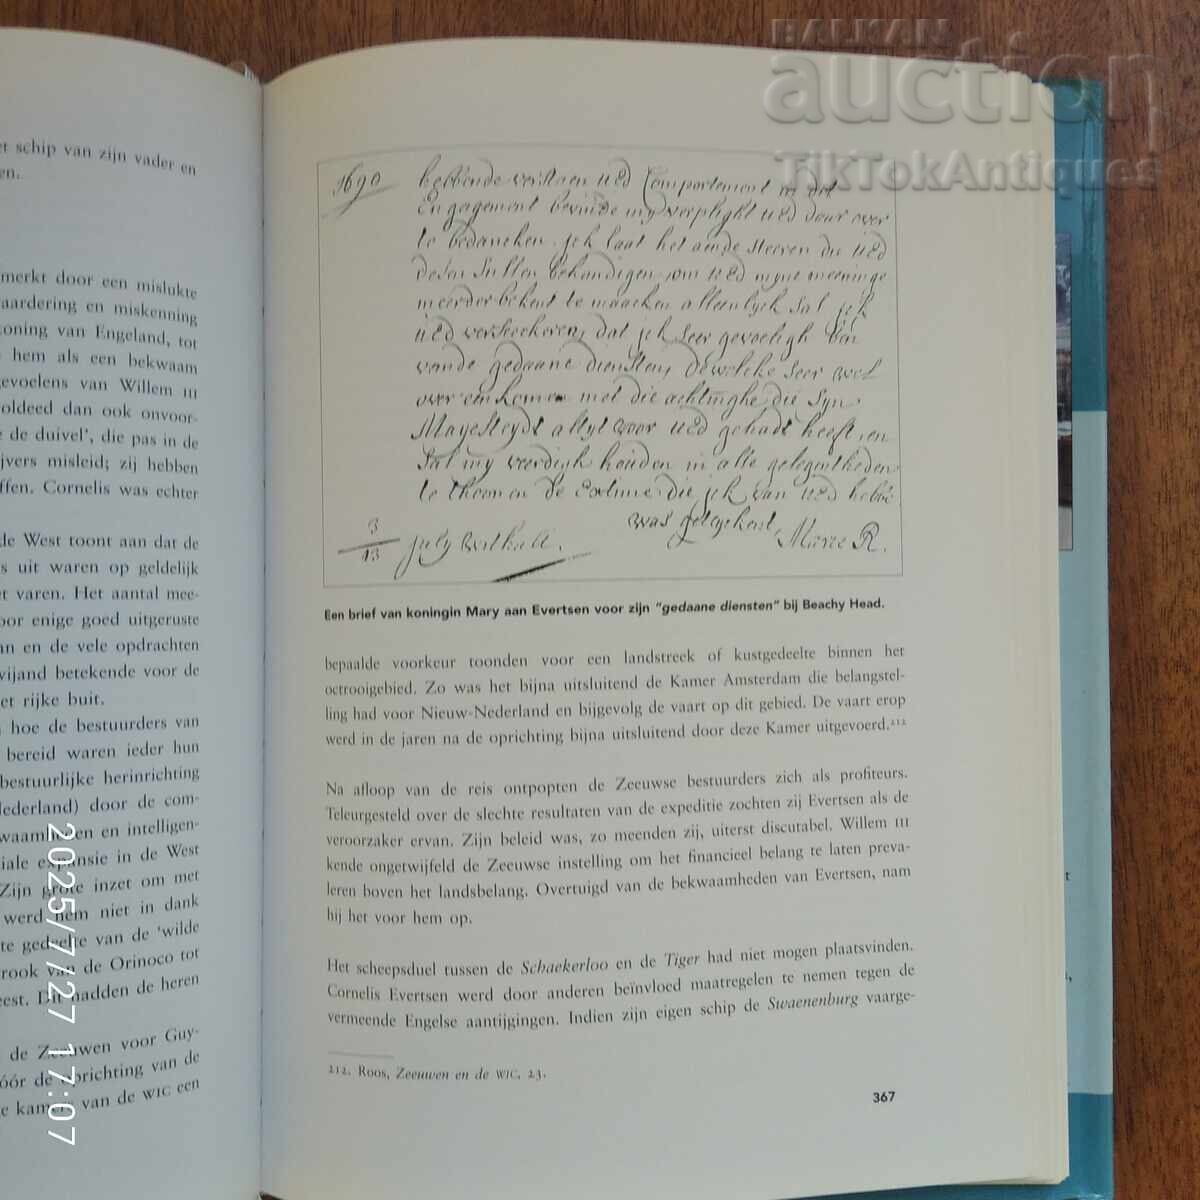 et schip van zijn vader en
en.
merkt door een mislukte
aardering en miskenning
koning van Engeland, tot
hem als een bekwaam
gevoelens van Willem III
oldeed dan ook onvoor-
e de duivel', die pas in de
ijvers misleid; zij hebben
ffen. Cornelis was echter
de West toont aan dat de
s uit waren op geldelijk
et varen. Het aantal mee-
oor enige goed uitgeruste
an en de vele opdrachten
vijand betekende voor de
et rijke buit.
hoe de bestuurders van
bereid waren ieder hun
bestuurlijke herinrichting
Nederland) door de com-
kwaamheden en intelligen-
iale expansie in de West
Zijn grote inzet om met
werd hem niet in dank
te gedeelte van de 'wilde
rook van de Orinoco tot
eest. Dit hadden de heren
de Zeeuwen voor Guy-
vóór de oprichting van de
e kamers van de WIC een
1690
hebbende verstaen UEd Comportement in dat
Engagement bevinde my verplight UEd daar over
te bedancken. jck laat het aende Heeren die UEd
desen sullen behandigen, om UEd myne meeninge
meerder bekent te maacken alleenlyck sal jck
UEd verseeckeren, dat jck seer gevoeligh ben
vande gedaane diensten, dewelcke seer wel
over een komen met die achtinghe die Syn
Mayesteydt altyt voor UEd gehadt heeft, en
sal my veerdigh houden in alle gelegentheden
te thoonen de Estime die jck van UEd hebbe
was geteykent, Marie R.
3/13 july Withall.
Een brief van koningin Mary aan Evertsen voor zijn "gedaane diensten" bij Beachy Head.
bepaalde voorkeur toonden voor een landstreek of kustgedeelte binnen het
octrooigebied. Zo was het bijna uitsluitend de Kamer Amsterdam die belangstel-
ling had voor Nieuw-Nederland en bijgevolg de vaart op dit gebied. De vaart erop
werd in de jaren na de oprichting bijna uitsluitend door deze Kamer uitgevoerd.212
Na afloop van de reis ontpopten de Zeeuwse bestuurders zich als profiteurs.
Teleurgesteld over de slechte resultaten van de expeditie zochten zij Evertsen als de
veroorzaker ervan. Zijn beleid was, zo meenden zij, uiterst discutabel. Willem III
kende ongetwijfeld de Zeeuwse instelling om het financieel belang te laten preva-
leren boven het landsbelang. Overtuigd van de bekwaamheden van Evertsen, nam
hij het voor hem op.
Het scheepsduel tussen de Schaekerloo en de Tiger had niet mogen plaatsvinden.
Cornelis Evertsen werd door anderen beïnvloed maatregelen te nemen tegen de
vermeende Engelse aantijgingen. Indien zijn eigen schip de Swaenenburg vaarge-
212. Roos, Zeeuwen en de WIC, 23.
367
BALKAN
auction
TikTokAntiques
2025/7/27 17:07